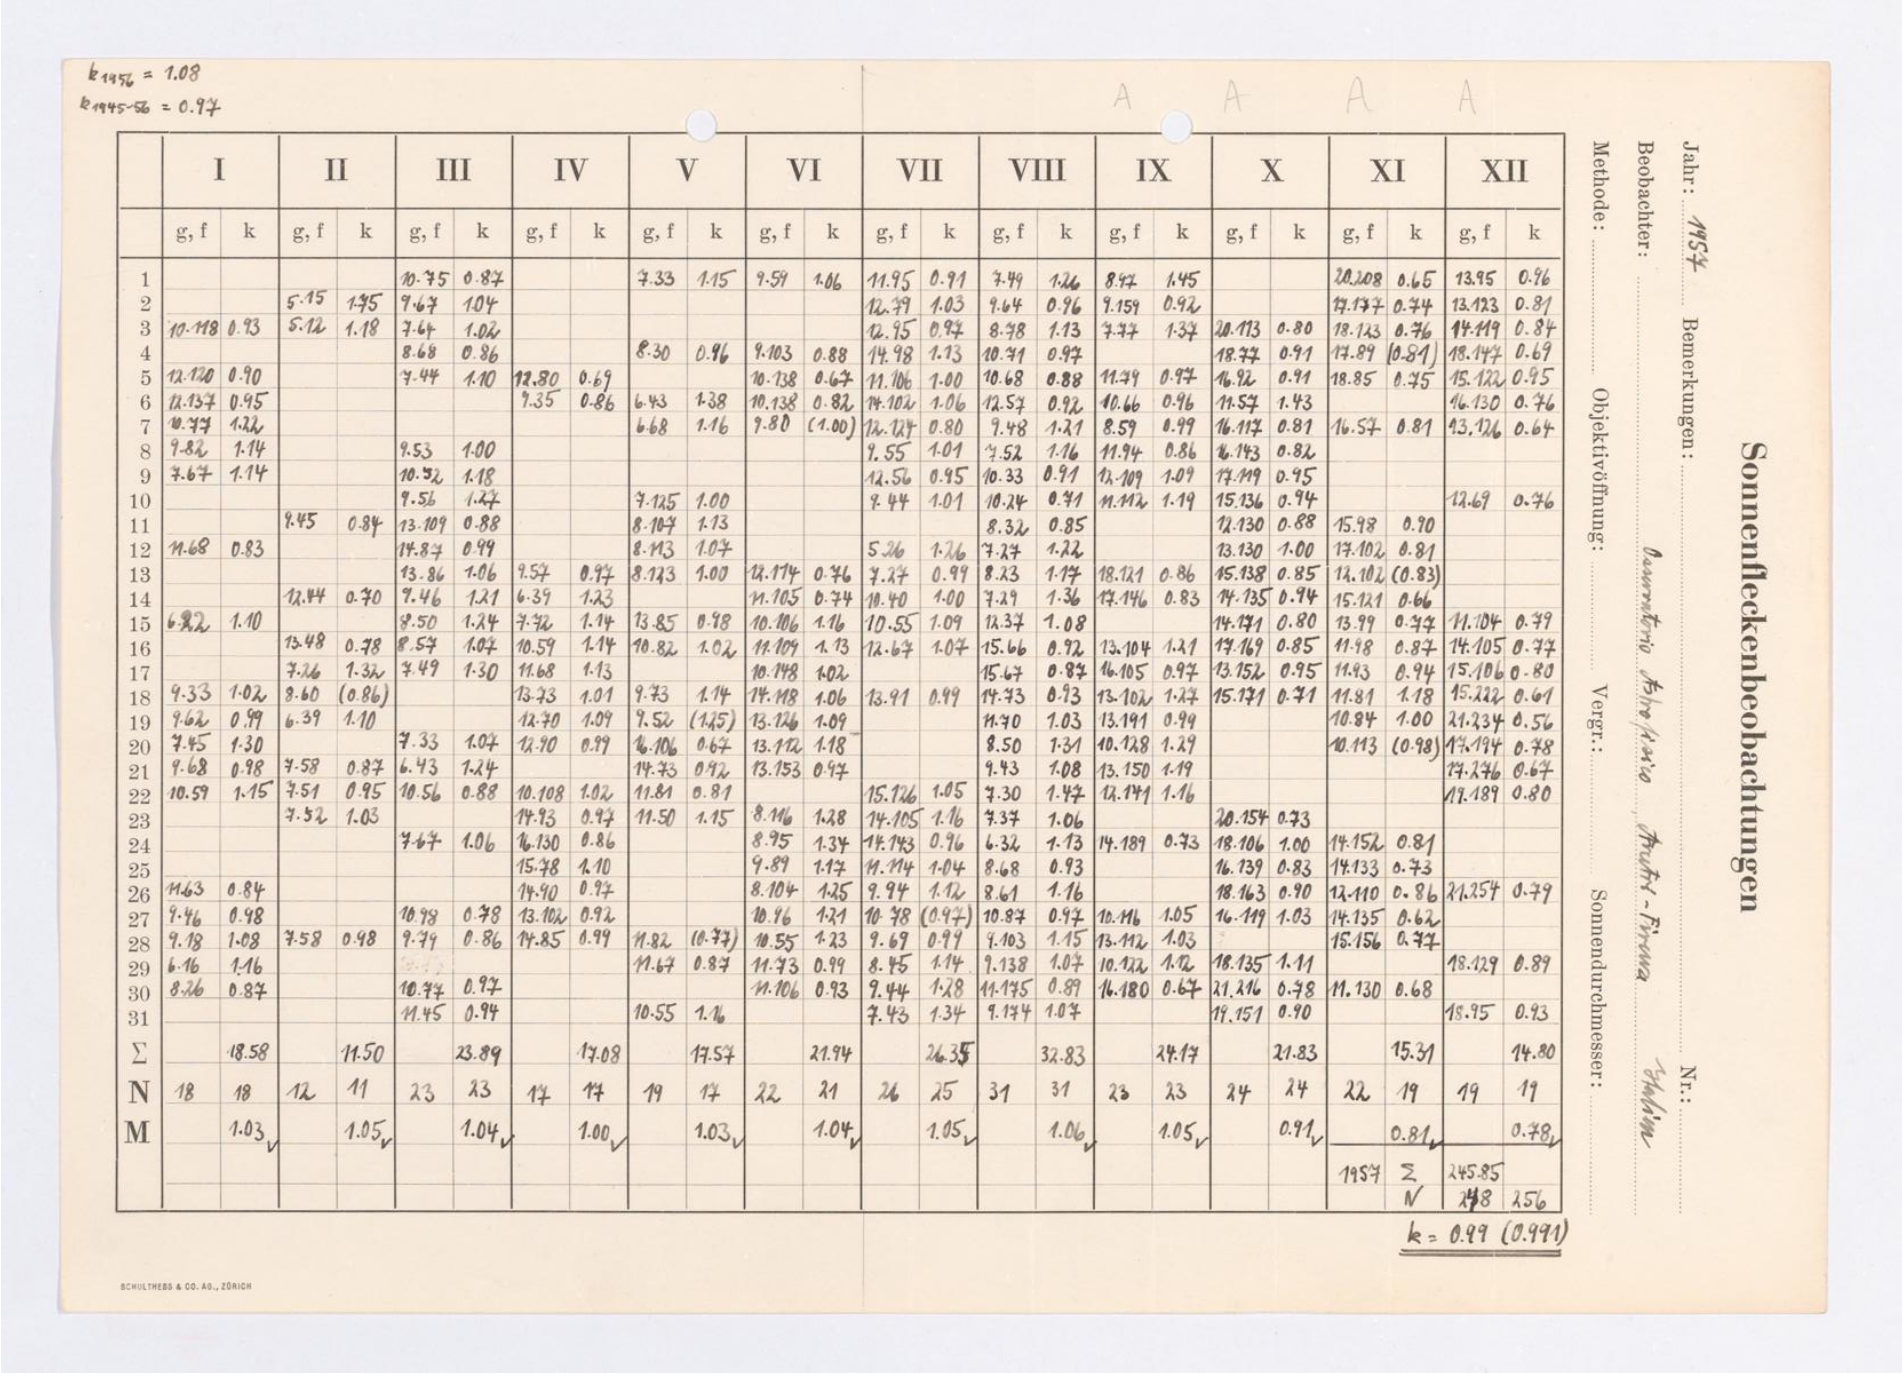 k1956 = 1.08
k1945-56 = 0.97
A A A A
I II III IV V VI VII VIII IX X XI XII
g, f k g, f k g, f k g, f k g, f k g, f k g, f k g, f k g, f k g, f k g, f k g, f k
1 10.75 0.87 7.33 1.15 9.59 1.06 11.95 0.91 7.49 1.26 8.97 1.45 20.208 0.65 13.95 0.96
2 5.15 1.75 9.67 1.04 12.79 1.03 9.64 0.96 9.159 0.92 17.177 0.74 13.123 0.81
3 10.118 0.93 5.12 1.18 7.64 1.02 12.95 0.97 8.78 1.13 7.77 1.37 20.113 0.80 18.123 0.76 14.119 0.84
4 8.68 0.86 8.30 0.96 9.103 0.88 14.98 1.13 10.71 0.97 18.77 0.91 17.89 (0.81) 18.147 0.69
5 12.120 0.90 7.44 1.10 12.80 0.69 10.138 0.67 11.106 1.00 10.68 0.88 11.79 0.97 16.92 0.91 18.85 0.75 15.122 0.95
6 12.137 0.95 9.35 0.86 6.43 1.38 10.138 0.82 14.102 1.06 12.57 0.92 10.66 0.96 11.57 1.43 16.130 0.76
7 10.77 1.22 6.68 1.16 9.80 (1.00) 12.124 0.80 9.48 1.21 8.59 0.99 16.117 0.81 16.57 0.81 13.126 0.64
8 9.82 1.14 9.53 1.00 9.55 1.01 7.52 1.16 11.94 0.86 16.143 0.82
9 7.67 1.14 10.52 1.18 12.56 0.95 10.33 0.91 12.109 1.09 17.119 0.95
10 9.56 1.27 7.125 1.00 9.44 1.01 10.24 0.71 11.112 1.19 15.136 0.94 12.69 0.76
11 9.45 0.84 13.109 0.88 8.107 1.13 8.32 0.85 12.130 0.88 15.98 0.90
12 11.68 0.83 14.87 0.99 8.113 1.07 5.26 1.26 7.27 1.22 13.130 1.00 17.102 0.81
13 13.86 1.06 9.57 0.97 8.123 1.00 12.114 0.76 7.27 0.99 8.23 1.17 18.121 0.86 15.138 0.85 12.102 (0.83)
14 12.44 0.70 9.46 1.21 6.39 1.23 11.105 0.74 10.40 1.00 7.29 1.36 17.146 0.83 14.135 0.94 15.121 0.66
15 6.22 1.10 8.50 1.24 7.72 1.14 13.85 0.98 10.106 1.16 10.55 1.09 12.37 1.08 14.171 0.80 13.99 0.77 11.104 0.79
16 13.48 0.78 8.57 1.07 10.59 1.14 10.82 1.02 11.109 1.13 12.67 1.07 15.66 0.92 13.104 1.21 17.169 0.85 11.98 0.87 14.105 0.77
17 7.26 1.32 7.49 1.30 11.68 1.13 10.148 1.02 15.67 0.87 16.105 0.97 13.152 0.95 11.93 0.94 15.106 0.80
18 9.33 1.02 8.60 (0.86) 13.73 1.01 9.73 1.14 14.118 1.06 13.91 0.99 14.73 0.93 13.102 1.27 15.171 0.71 11.81 1.18 15.222 0.61
19 9.62 0.99 6.39 1.10 12.70 1.09 9.52 (1.25) 13.126 1.09 11.70 1.03 13.191 0.99 10.84 1.00 21.234 0.56
20 7.45 1.30 7.33 1.07 12.90 0.99 16.106 0.67 13.112 1.18 8.50 1.31 10.128 1.29 10.113 (0.98) 17.194 0.78
21 9.68 0.98 7.58 0.87 6.43 1.24 14.73 0.92 13.153 0.97 9.43 1.08 13.150 1.19 17.276 0.67
22 10.59 1.15 7.51 0.95 10.56 0.88 10.108 1.02 11.81 0.81 15.126 1.05 7.30 1.47 12.141 1.16 19.189 0.80
23 7.52 1.03 14.93 0.97 11.50 1.15 8.116 1.28 14.105 1.16 7.37 1.06 20.154 0.73
24 7.67 1.06 16.130 0.86 8.95 1.34 14.143 0.96 6.32 1.13 14.189 0.73 18.106 1.00 14.152 0.81
25 15.78 1.10 9.89 1.17 11.114 1.04 8.68 0.93 16.139 0.83 14.133 0.73
26 11.63 0.84 14.90 0.97 8.104 1.25 9.94 1.12 8.61 1.16 18.163 0.90 12.110 0.86 21.254 0.79
27 9.46 0.98 10.98 0.78 13.102 0.92 10.96 1.21 10.78 (0.97) 10.87 0.97 10.116 1.05 16.119 1.03 14.135 0.62
28 9.18 1.08 7.58 0.98 9.79 0.86 14.85 0.99 11.82 (0.77) 10.55 1.23 9.69 0.99 9.103 1.15 13.112 1.03 15.156 0.77
29 6.16 1.16 11.67 0.87 11.73 0.99 8.45 1.14 9.138 1.07 10.122 1.12 18.135 1.11 18.129 0.89
30 8.26 0.87 10.77 0.97 11.106 0.93 9.44 1.28 11.175 0.89 16.180 0.67 21.216 0.78 11.130 0.68
31 11.45 0.94 10.55 1.16 7.43 1.34 9.174 1.07 19.151 0.90 18.95 0.93
Σ 18.58 11.50 23.89 17.08 17.57 21.94 26.35 32.83 24.17 21.83 15.31 14.80
N 18 18 12 11 23 23 17 17 19 17 22 21 26 25 31 31 23 23 24 24 22 19 19 19
M 1.03✓ 1.05✓ 1.04✓ 1.00✓ 1.03✓ 1.04✓ 1.05✓ 1.06✓ 1.05✓ 0.91✓ 0.81✓ 0.78✓
1957 Σ 245.85
N 248 256
k = 0.99 (0.991)
SCHULTHESS & CO. AG., ZÜRICH
Sonnenfleckenbeobachtungen
Jahr: 1957 Bemerkungen: Nr.:
Beobachter: Osservatorio Astrofisico, Arcetri-Firenze Italien
Methode: Objektivöffnung: Vergr.: Sonnendurchmesser: